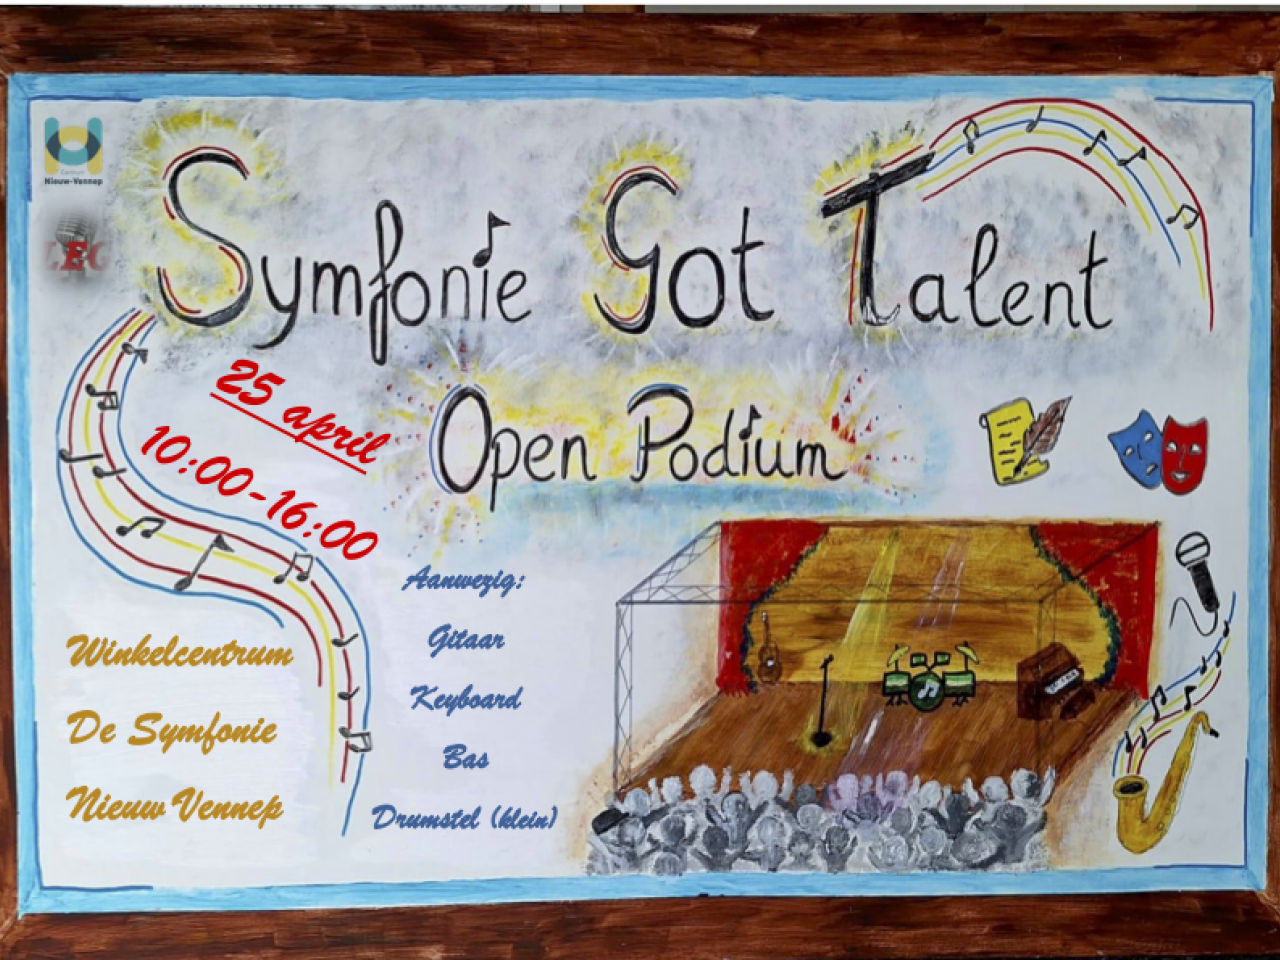 Centrum
Nieuw-Vennep
LEC
Symfonie Got Talent
Open Podium
25 april
10:00-16:00
Winkelcentrum
De Symfonie
Nieuw Vennep
Aanwezig:
Gitaar
Keyboard
Bas
Drumstel (klein)